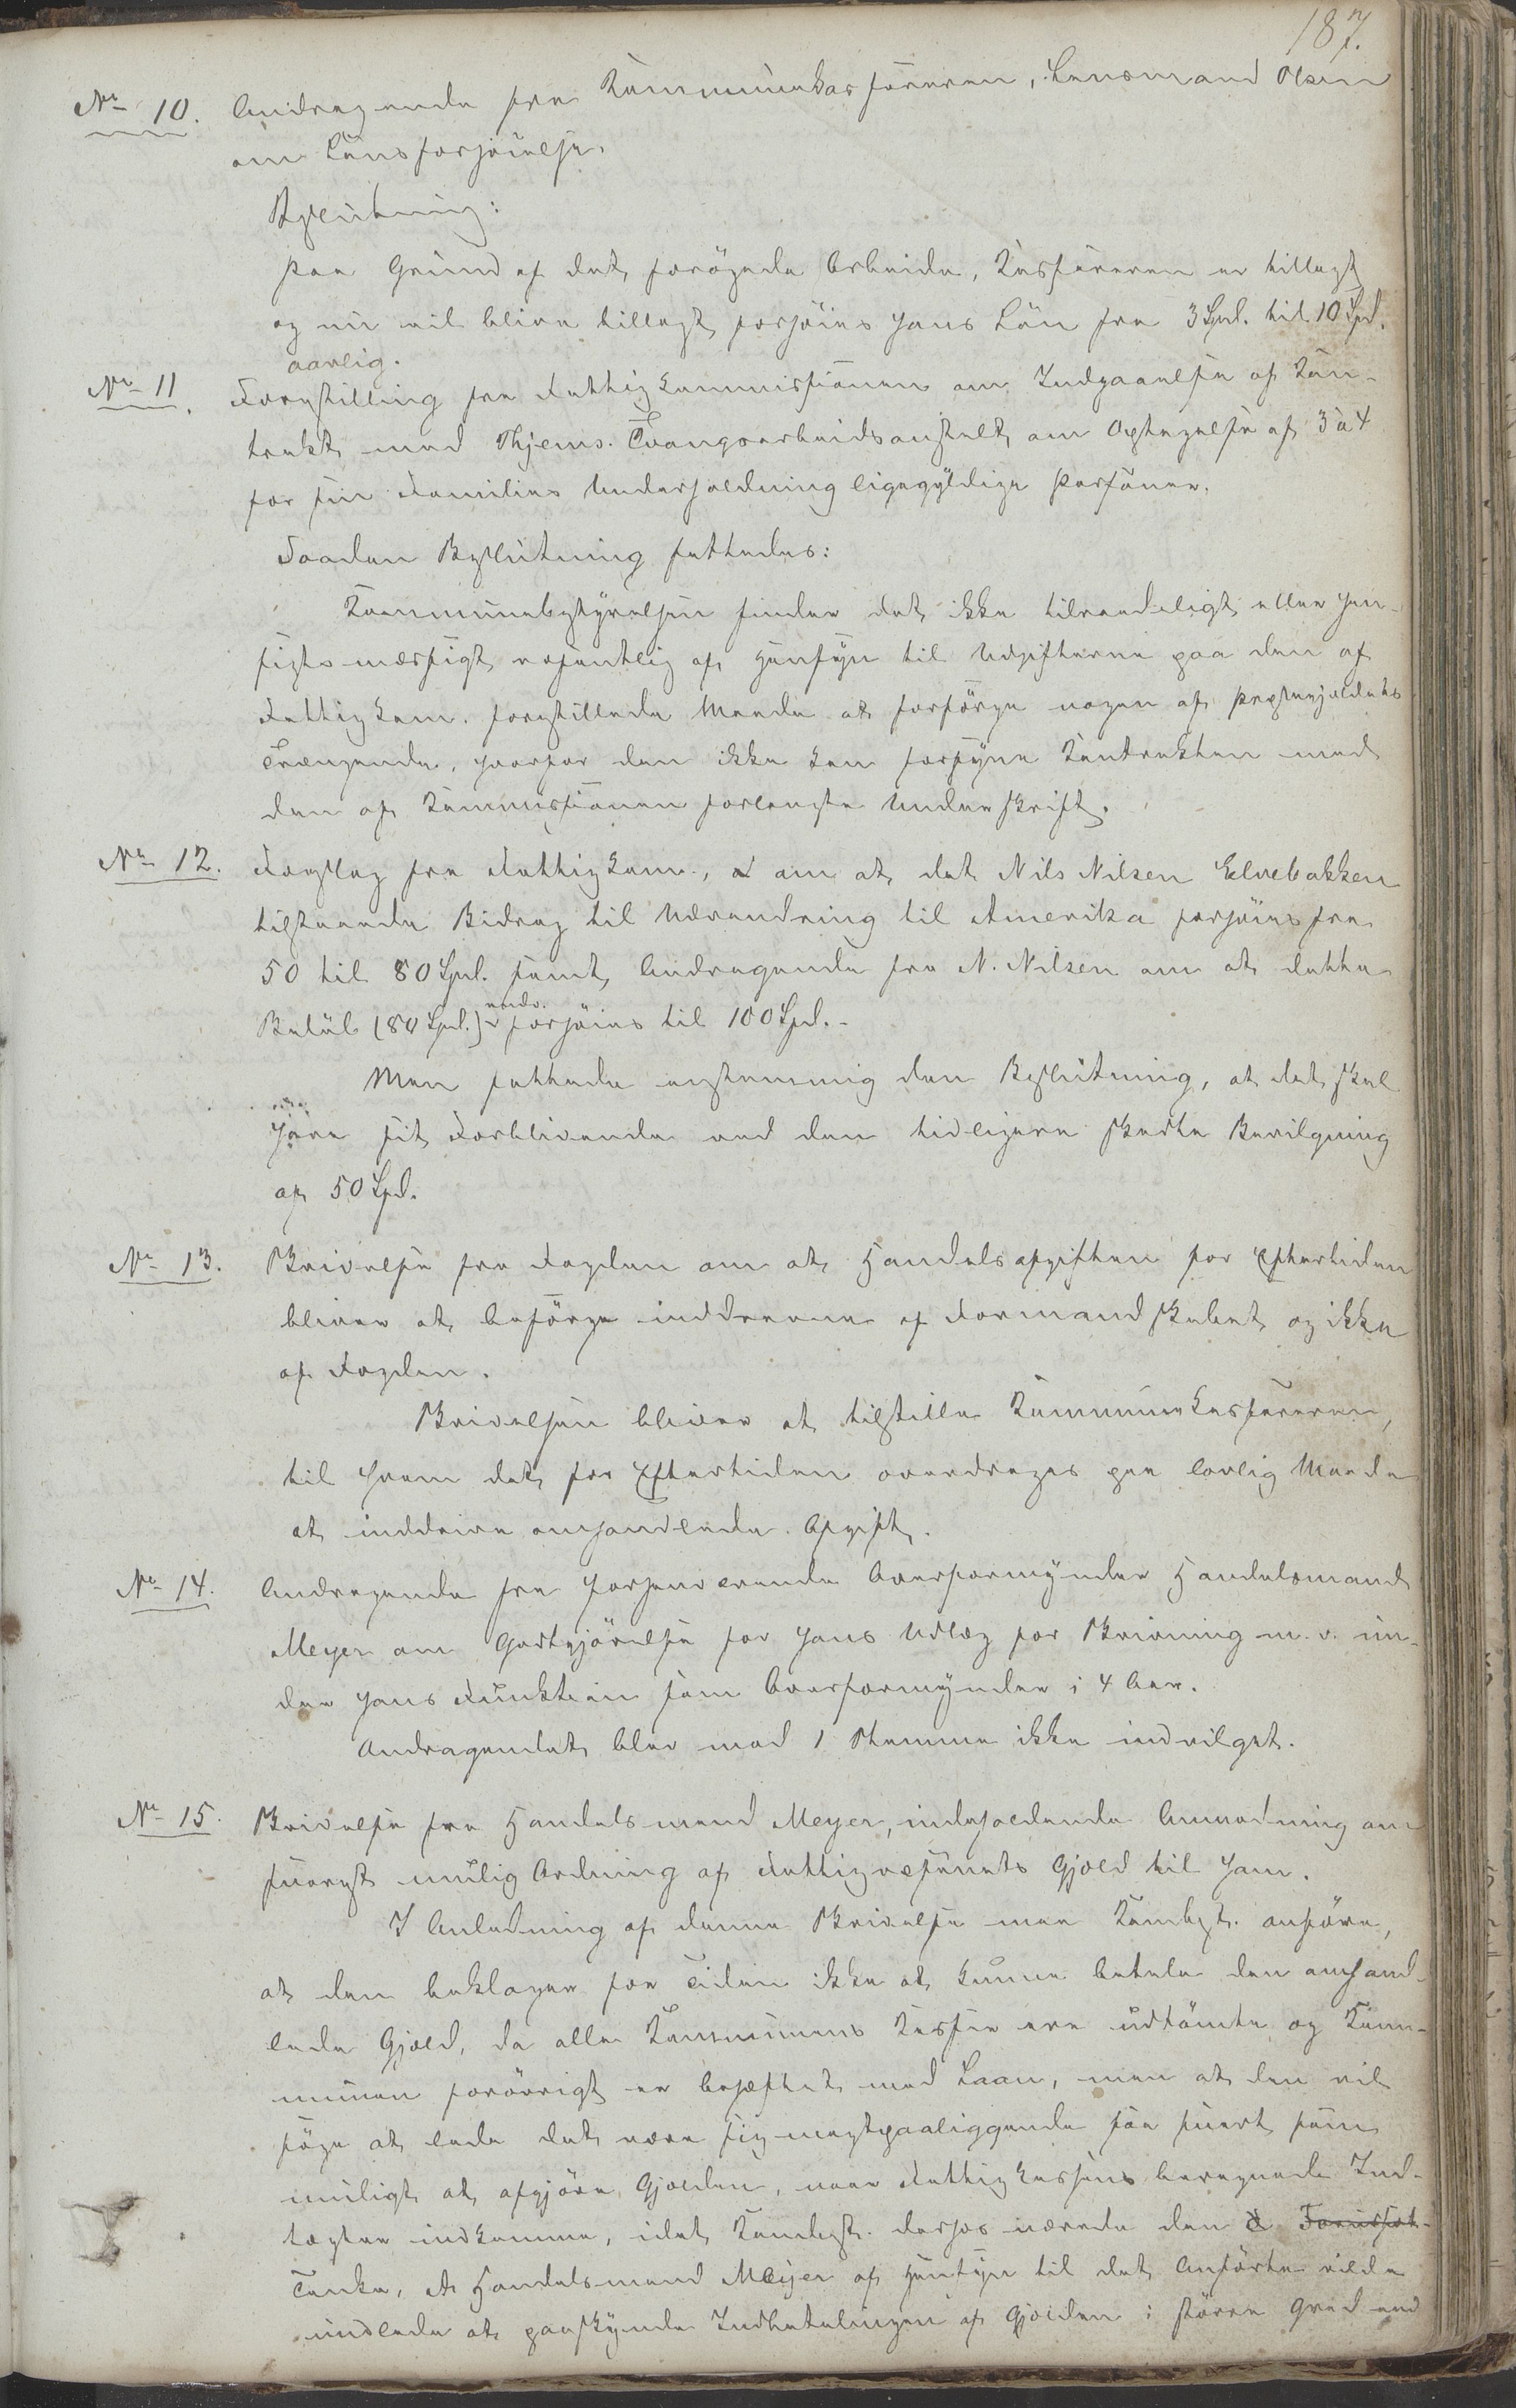 187.
No 10. Andragende fra Kommunekasføreren, Lensmand Olsen
om Lønsforhøielse.
Beslutning:
Paa Grund af det forøgede Arbeide, Kasføreren er tillagt
og nu vil blive tillagt, forhøies hans Løn fra 3 Spd. til 10 Spd.
aarlig.
No 11. Forestilling fra Fattigkommissionen om Indgaaelse af Kon-
trakt med Thjems. Tvangsarbeidsanstalt om Optagelse af 3 à 4
for sin Families Underholdning ligegyldige Personer.
Saadan Beslutning fattedes:
Kommunebestyrelsen finder det ikke tilraadeligt eller hen-
sigtsmæssigt væsentlig af Hensyn til Udgifterne paa den af
Fattigkom. forestillede Maade at forsørge nogen af Præstegjældets
Trængende, hvorfor den ikke kan forsyne Kontrakten med
den af Kommissionen forlangte Underskrift.
No 12. Forslag fra Fattigkom., om at det Nils Nilsen Elvebakken
tilstaaede Bidrag til Udvandring til Amerika forhøies fra
50 til 80 Spd. samt Andragende fra N. Nilsen om at dette
Beløb (80 Spd.) forhøies til 100 Spd. -
Man fattede enstemmig den Beslutning, at det skal
have sit Forblivende ved den tidligere skedte Bevilgning
af 50 Spd.
No 13. Skrivelse fra Fogden om at Handelsafgiften for Eftertiden
bliver at besørge inddreven af Formandskabet og ikke
af Fogden.
Skrivelsen bliver at tilstille Kommunekasføreren,
til hvem det for Eftertiden overdrages paa lovlig Maade
at inddrive omhandlende Afgift.
No 14. Andragende fra forhenværende Overformynder Handelsmand
Meyer om Godtgjørelse for hans Udlæg for Skrivning m. v. un-
der hans Funktion som Overformynder i 4 Aar.
Andragendet blev mod 1 Stemme ikke indvilget.
No 15. Skrivelse fra Handelsmand Meyer, indeholdende Anmodning om
snarest mulig Ordning af Fattigvæsenets Gjæld til ham.
I Anledning af denne Skrivelse maa Kombst. anføre,
at den beklager for Tiden ikke at kunne betale den omhand-
lede Gjæld, da alle Kommunens Kasser ere udtømte og Kom-
munen forøvrigt er behæftet med Laan, men at den vil
søge at lade det være sig magtpaaliggende saa snart som
muligt at afgjøre Gjælden, naar Fattigkassens beregnede Ind-
tægter indkomme, idet Kombest. derhos nærede den
Tanke, at Handelsmand Meyer af Hensyn til det Anførte vilde
undlade at paaskynde Indbetalingen af Gjælden i større Grad end